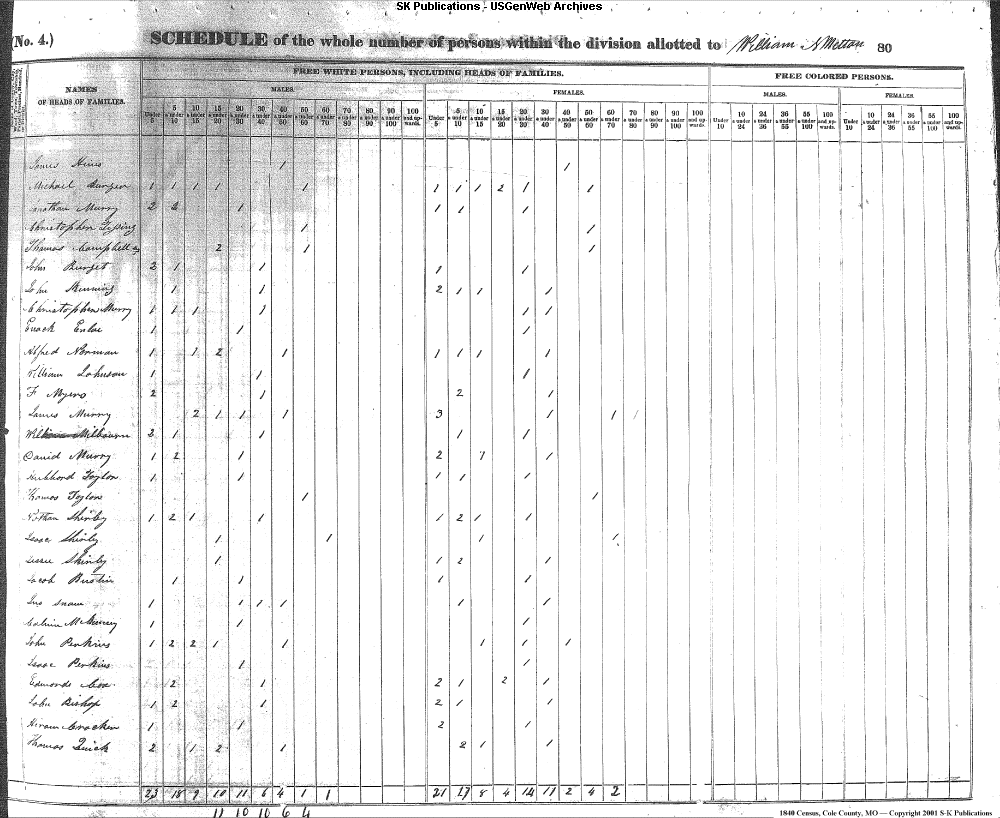 SK Publications - USGenWeb Archives
(No. 4.) SCHEDULE of the whole number of persons within the division allotted to William N Melton 80
FREE WHITE PERSONS, INCLUDING HEADS OF FAMILIES. FREE COLORED PERSONS.
NAMES OF HEADS OF FAMILIES. MALES. FEMALES. MALES. FEMALES.
Under 5 5 & under 10 10 & under 15 15 & under 20 20 & under 30 30 & under 40 40 & under 50 50 & under 60 60 & under 70 70 & under 80 80 & under 90 90 & under 100 100 and upwards Under 5 5 & under 10 10 & under 15 15 & under 20 20 & under 30 30 & under 40 40 & under 50 50 & under 60 60 & under 70 70 & under 80 80 & under 90 90 & under 100 100 and upwards Under 10 10 & under 24 24 & under 36 36 & under 55 55 & under 100 100 and upwards Under 10 10 & under 24 24 & under 36 36 & under 55 55 & under 100 100 and upwards
James Hines 1 1
Michael 1 1 1 1 1 1 1 1 2 1 1
Murry 2 2 1 1 1 1
Christophen 1 1
Thomas Campbell 2 1 1
John Burget 2 1 1 1 1
John 1 1 2 1 1 1
Christophen Murry 1 1 1 1 1 1
Enock Enloe 1 1 1
Alfred Norman 1 1 2 1 1 1 1 1
William Johnson 1 1 1
F Myers 2 1 2 1
James Murry 2 1 1 1 3 1 1 1
Milbourn 3 1 1 1 1
David Murry 1 2 1 2 1 1
1 1 1 1 1
Thomas 1 1
Nathan Shirley 1 2 1 1 1 2 1 1
Isaac Shirley 1 1 1 1
Shirley 1 1 2 1
Jacob 1 1 1 1
Snow 1 1 1 1 1 1
1 1 1
John Perkins 1 2 2 1 1 1 1 1
Isaac Perkins 1 1
Edmonds Cox 2 1 2 1 2 1
John Bishop 1 2 1 2 1 1
Hiram Crocken 1 1 2 1
Thomas Quick 2 1 2 1 2 1 1
23 18 9 10 11 6 4 1 1 21 17 8 4 14 11 2 4 2
11 10 10 6 4
1840 Census, Cole County, MO — Copyright 2001 S-K Publications